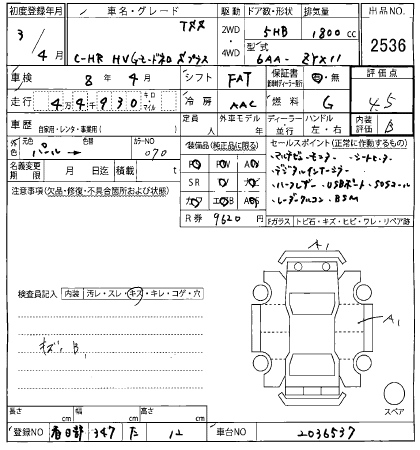 初度登録年月 車名・グレード 駆動 ドア数・形状 排気量 出品NO.
3/4月 トヨタ C-HR HV 2WD・4WD 5HB 1800cc 2536
型式 6AA-ZYX11
車検 8年4月 シフト FAT 保証書 有・無 評価点 4.5
走行 44930 キロ マイル 冷房 AAC 燃料 G 内装評価 B
車歴 自家用・レンタ・事業用( ) 定員 人 外車モデル 年 ディーラー・並行 ハンドル 左・右
外色 元色 パール 色替 カラーNO 070
装備品(純正品に限る)
セールスポイント(正常に作動するもの)
マルチビューモニター・シートヒーター
デジタルインナーミラー
ハーフレザー・USBポート・SOSコール
レーダークルコン・BSM
名義変更期限 月 日迄 積載 t
PS PW AW
SR ナビ
カワ エアB
R券 9620円
注意事項(欠品・修復・不具合箇所および状態)
Fガラス トビ石・キズ・ヒビ・ワレ・リペア跡
A1
検査員記入 内装 汚レ・スレ・キズ・キレ・コゲ・穴
A1
キズ、B
スペア
長さ cm 幅 cm 高さ cm
登録NO 春日部 347 た 12 車台NO 2036537